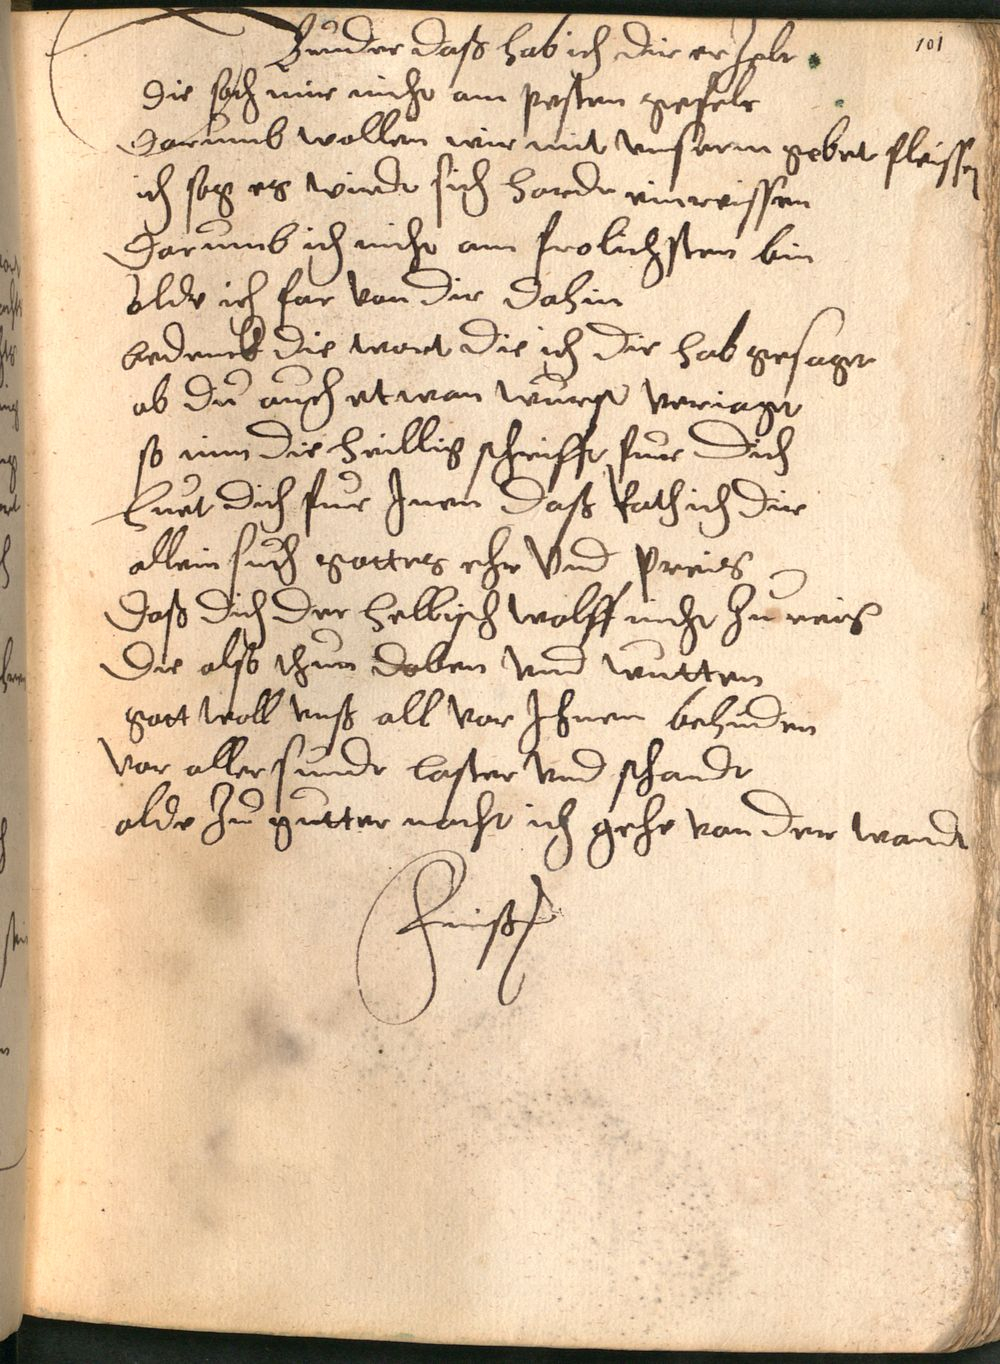 101
Bruder daß hab ich dir erzelt
die sach mir nicht am pesten gefelt
Darumb wollen wir mit unserm gebet fleissen
ich sag es wirdt sich hardt einreissen
Darumb ich nicht am frolichsten bin
alde ich far von dir dahin
bedenck die wort die ich dir hab gesaget
ab du auch etwan wurst veriaget
so nim die heillig schrifft fur dich
huet dich fur Inen daß rath ich dir
allein such gottes ehr und preiß
Daß dich der hellisch wolff nicht zu reiß
Die also thun doben und wutten
gott woll unß all vor Ihnen behuden
vor aller sunde laster und schandt
alde zu gutter nacht ich gehe von der wandt
Finis